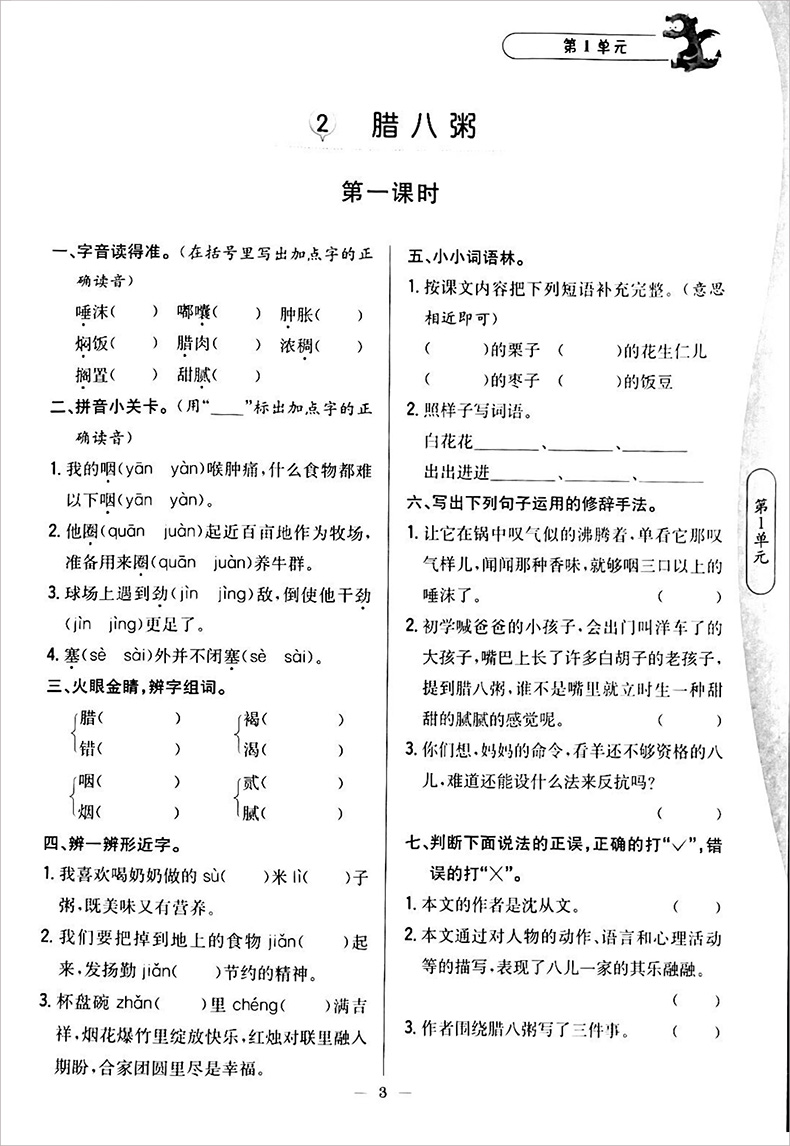 第1单元
2 腊八粥
第一课时
一、字音读得准。(在括号里写出加点字的正
确读音)
唾沫( ) 嘟囔( ) 肿胀( )
焖饭( ) 腊肉( ) 浓稠( )
搁置( ) 甜腻( )
二、拼音小关卡。(用“____”标出加点字的正
确读音)
1. 我的咽(yān yàn)喉肿痛,什么食物都难
以下咽(yān yàn)。
2. 他圈(quān juàn)起近百亩地作为牧场,
准备用来圈(quān juàn)养牛群。
3. 球场上遇到劲(jìn jìng)敌,倒使他干劲
(jìn jìng)更足了。
4. 塞(sè sài)外并不闭塞(sè sài)。
三、火眼金睛,辨字组词。
腊( ) 褐( )
错( ) 渴( )
咽( ) 贰( )
烟( ) 腻( )
四、辨一辨形近字。
1. 我喜欢喝奶奶做的sù( )米lì( )子
粥,既美味又有营养。
2. 我们要把掉到地上的食物jiǎn( )起
来,发扬勤jiǎn( )节约的精神。
3. 杯盘碗zhǎn( )里chéng( )满吉
祥,烟花爆竹里绽放快乐,红烛对联里融入
期盼,合家团圆里尽是幸福。
五、小小词语林。
1. 按课文内容把下列短语补充完整。(意思
相近即可)
( )的栗子 ( )的花生仁儿
( )的枣子 ( )的饭豆
2. 照样子写词语。
白花花________、________、________
出出进进________、________、________
六、写出下列句子运用的修辞手法。
1. 让它在锅中叹气似的沸腾着,单看它那叹
气样儿,闻闻那种香味,就够咽三口以上的
唾沫了。 ( )
2. 初学喊爸爸的小孩子,会出门叫洋车了的
大孩子,嘴巴上长了许多白胡子的老孩子,
提到腊八粥,谁不是嘴里就立时生一种甜
甜的腻腻的感觉呢。 ( )
3. 你们想,妈妈的命令,看羊还不够资格的八
儿,难道还能设什么法来反抗吗?
( )
七、判断下面说法的正误,正确的打“✓”,错
误的打“✕”。
1. 本文的作者是沈从文。 ( )
2. 本文通过对人物的动作、语言和心理活动
等的描写,表现了八儿一家的其乐融融。
( )
3. 作者围绕腊八粥写了三件事。 ( )
第1单元
— 3 —